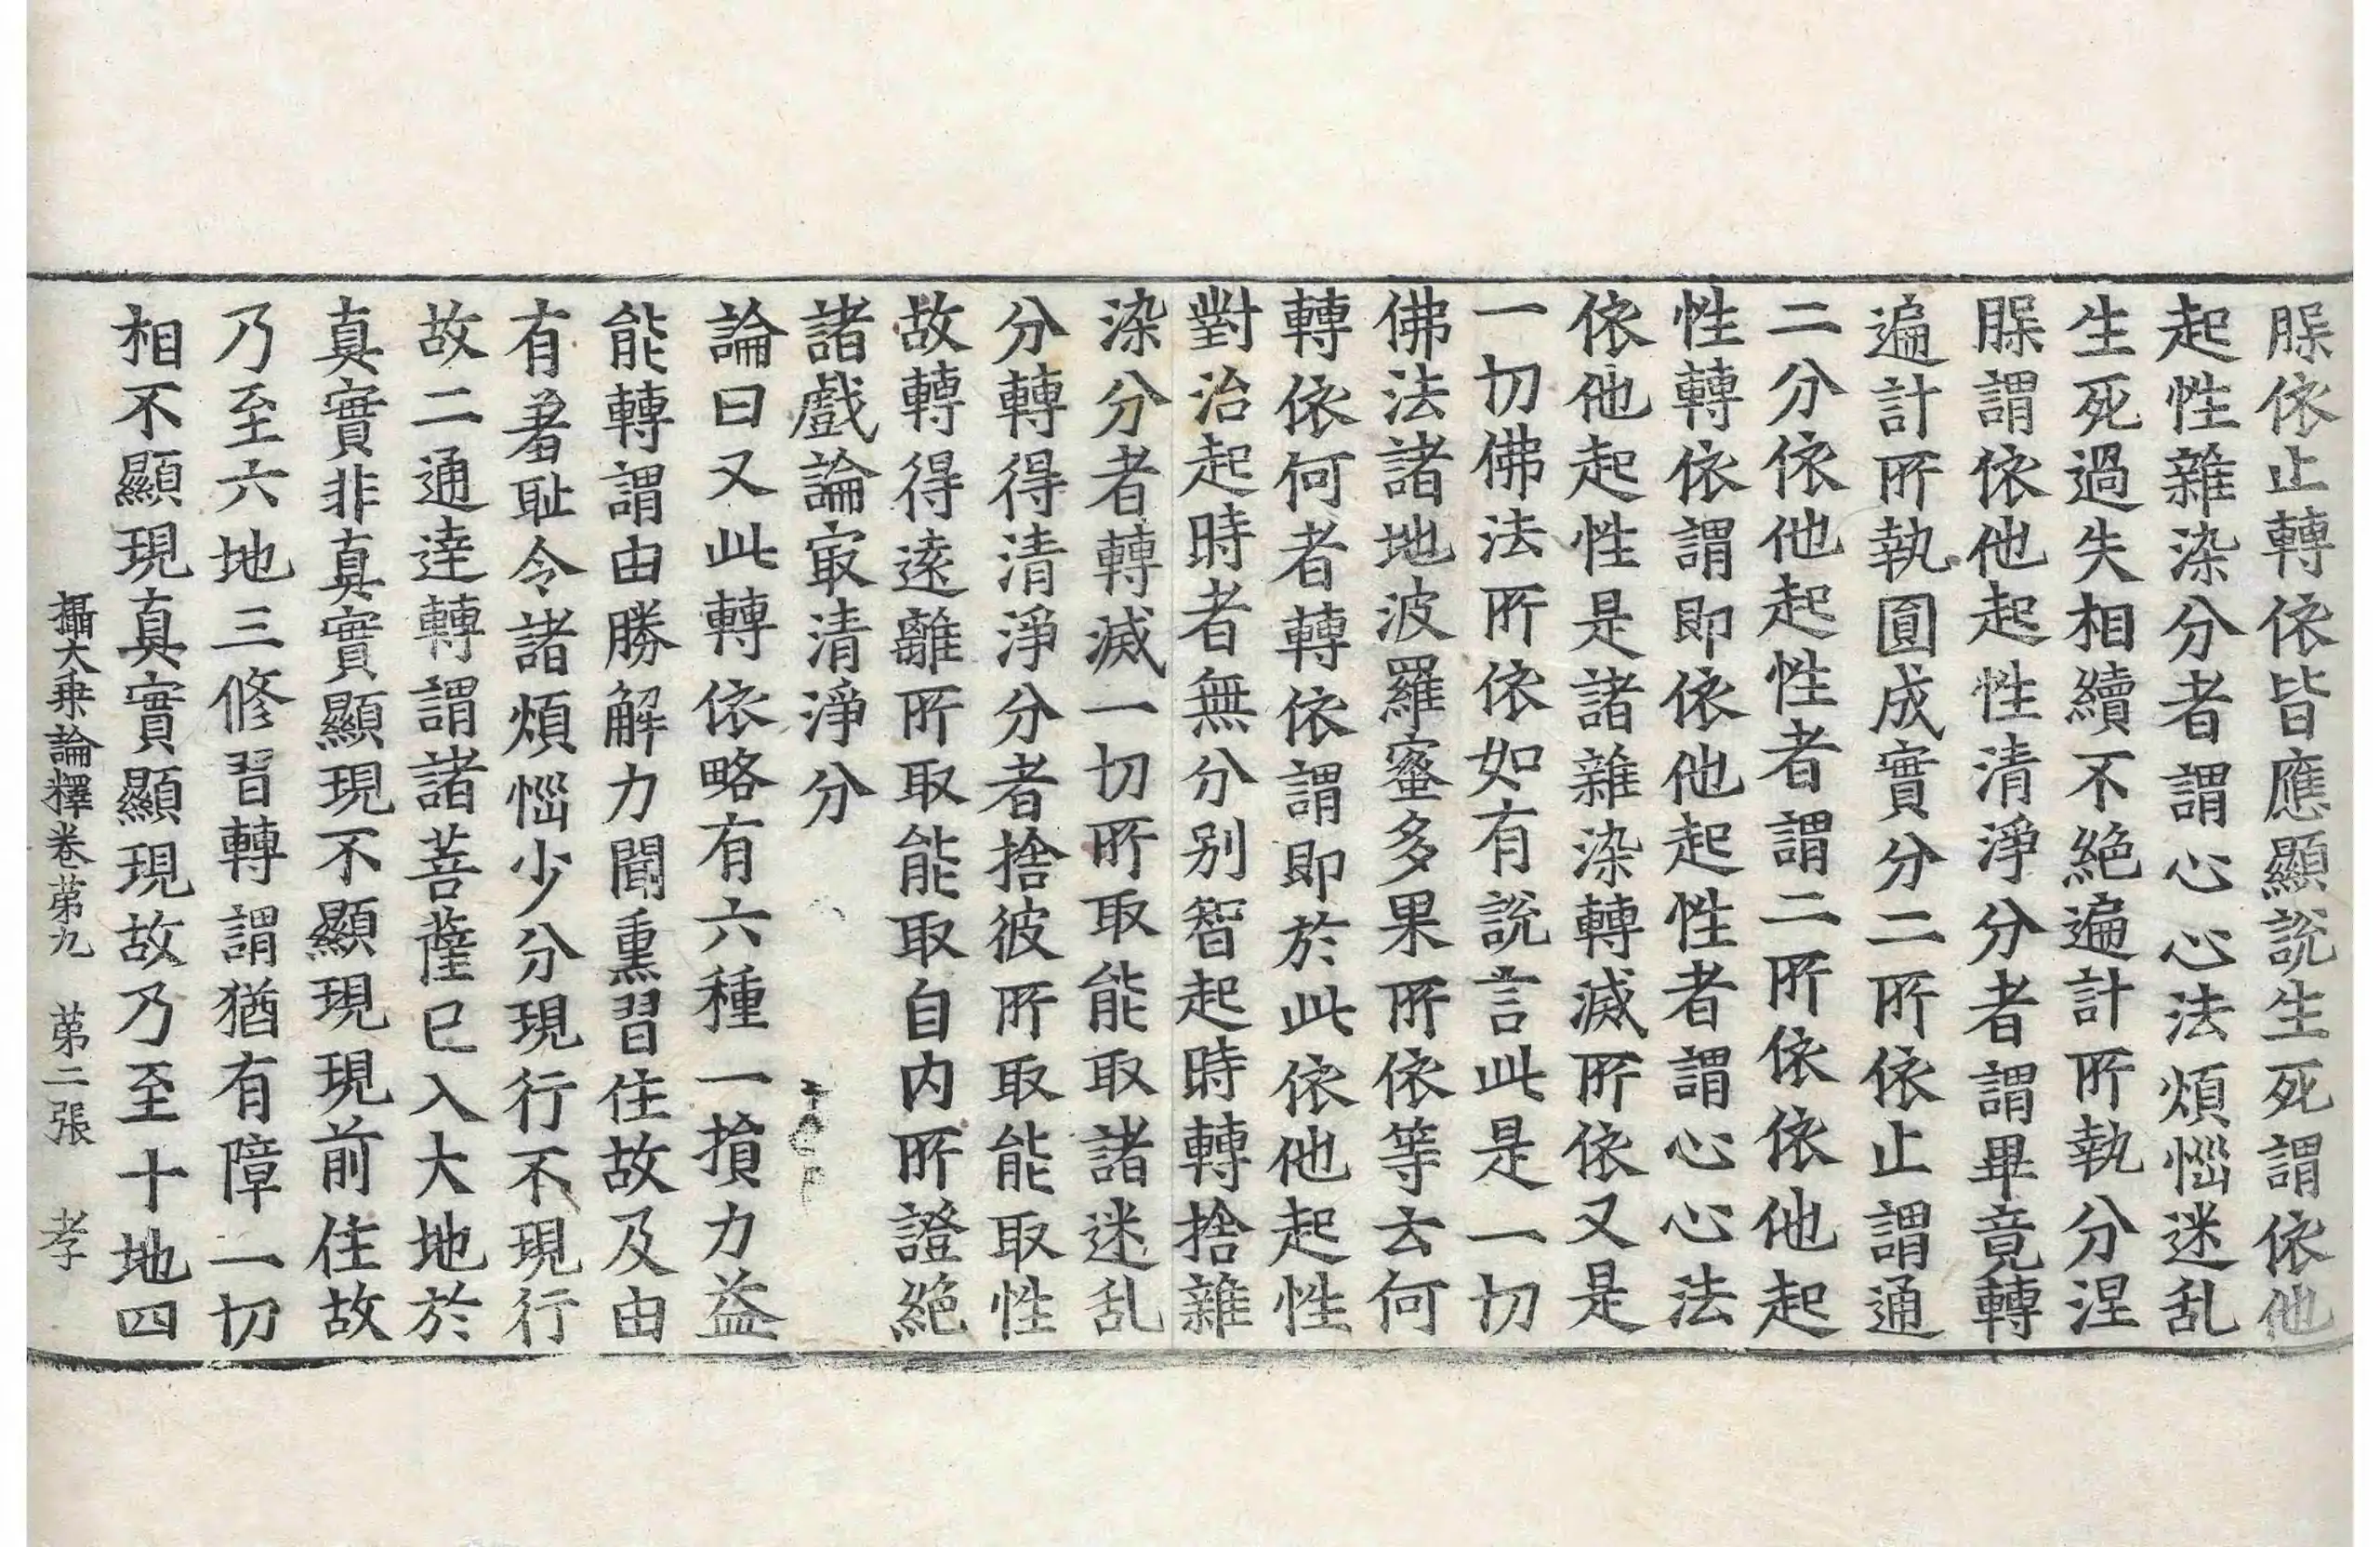 脵依止轉依皆應顯說生死謂依他
起性雜染分者謂心心法煩惱迷乱
生死過失相續不絕遍計所執分涅
脵謂依他起性清淨分者謂畢竟轉
遍計所執圓成實分二所依止謂通
二分依他起性者謂二所依依他起
性轉依謂即依他起性者謂心心法
依他起性是諸雜染轉滅所依又是
一切佛法所依如有說言此是一切
佛法諸地波羅蜜多果所依等云何
轉依何者轉依謂即於此依他起性
對治起時者無分別智起時轉捨雜
染分者轉滅一切所取能取諸迷乱
分轉得清淨分者捨彼所取能取性
故轉得遠離所取能取自內所證絕
諸戲論㝡清淨分
論曰又此轉依略有六種一損力益
能轉謂由勝解力聞熏習住故及由
有羞耻令諸煩惱少分現行不現行
故二通達轉謂諸菩薩已入大地於
真實非真實顯現不顯現現前住故
乃至六地三修習轉謂猶有障一切
相不顯現真實顯現故乃至十地四
攝大乗論釋卷苐九 苐二張 孝